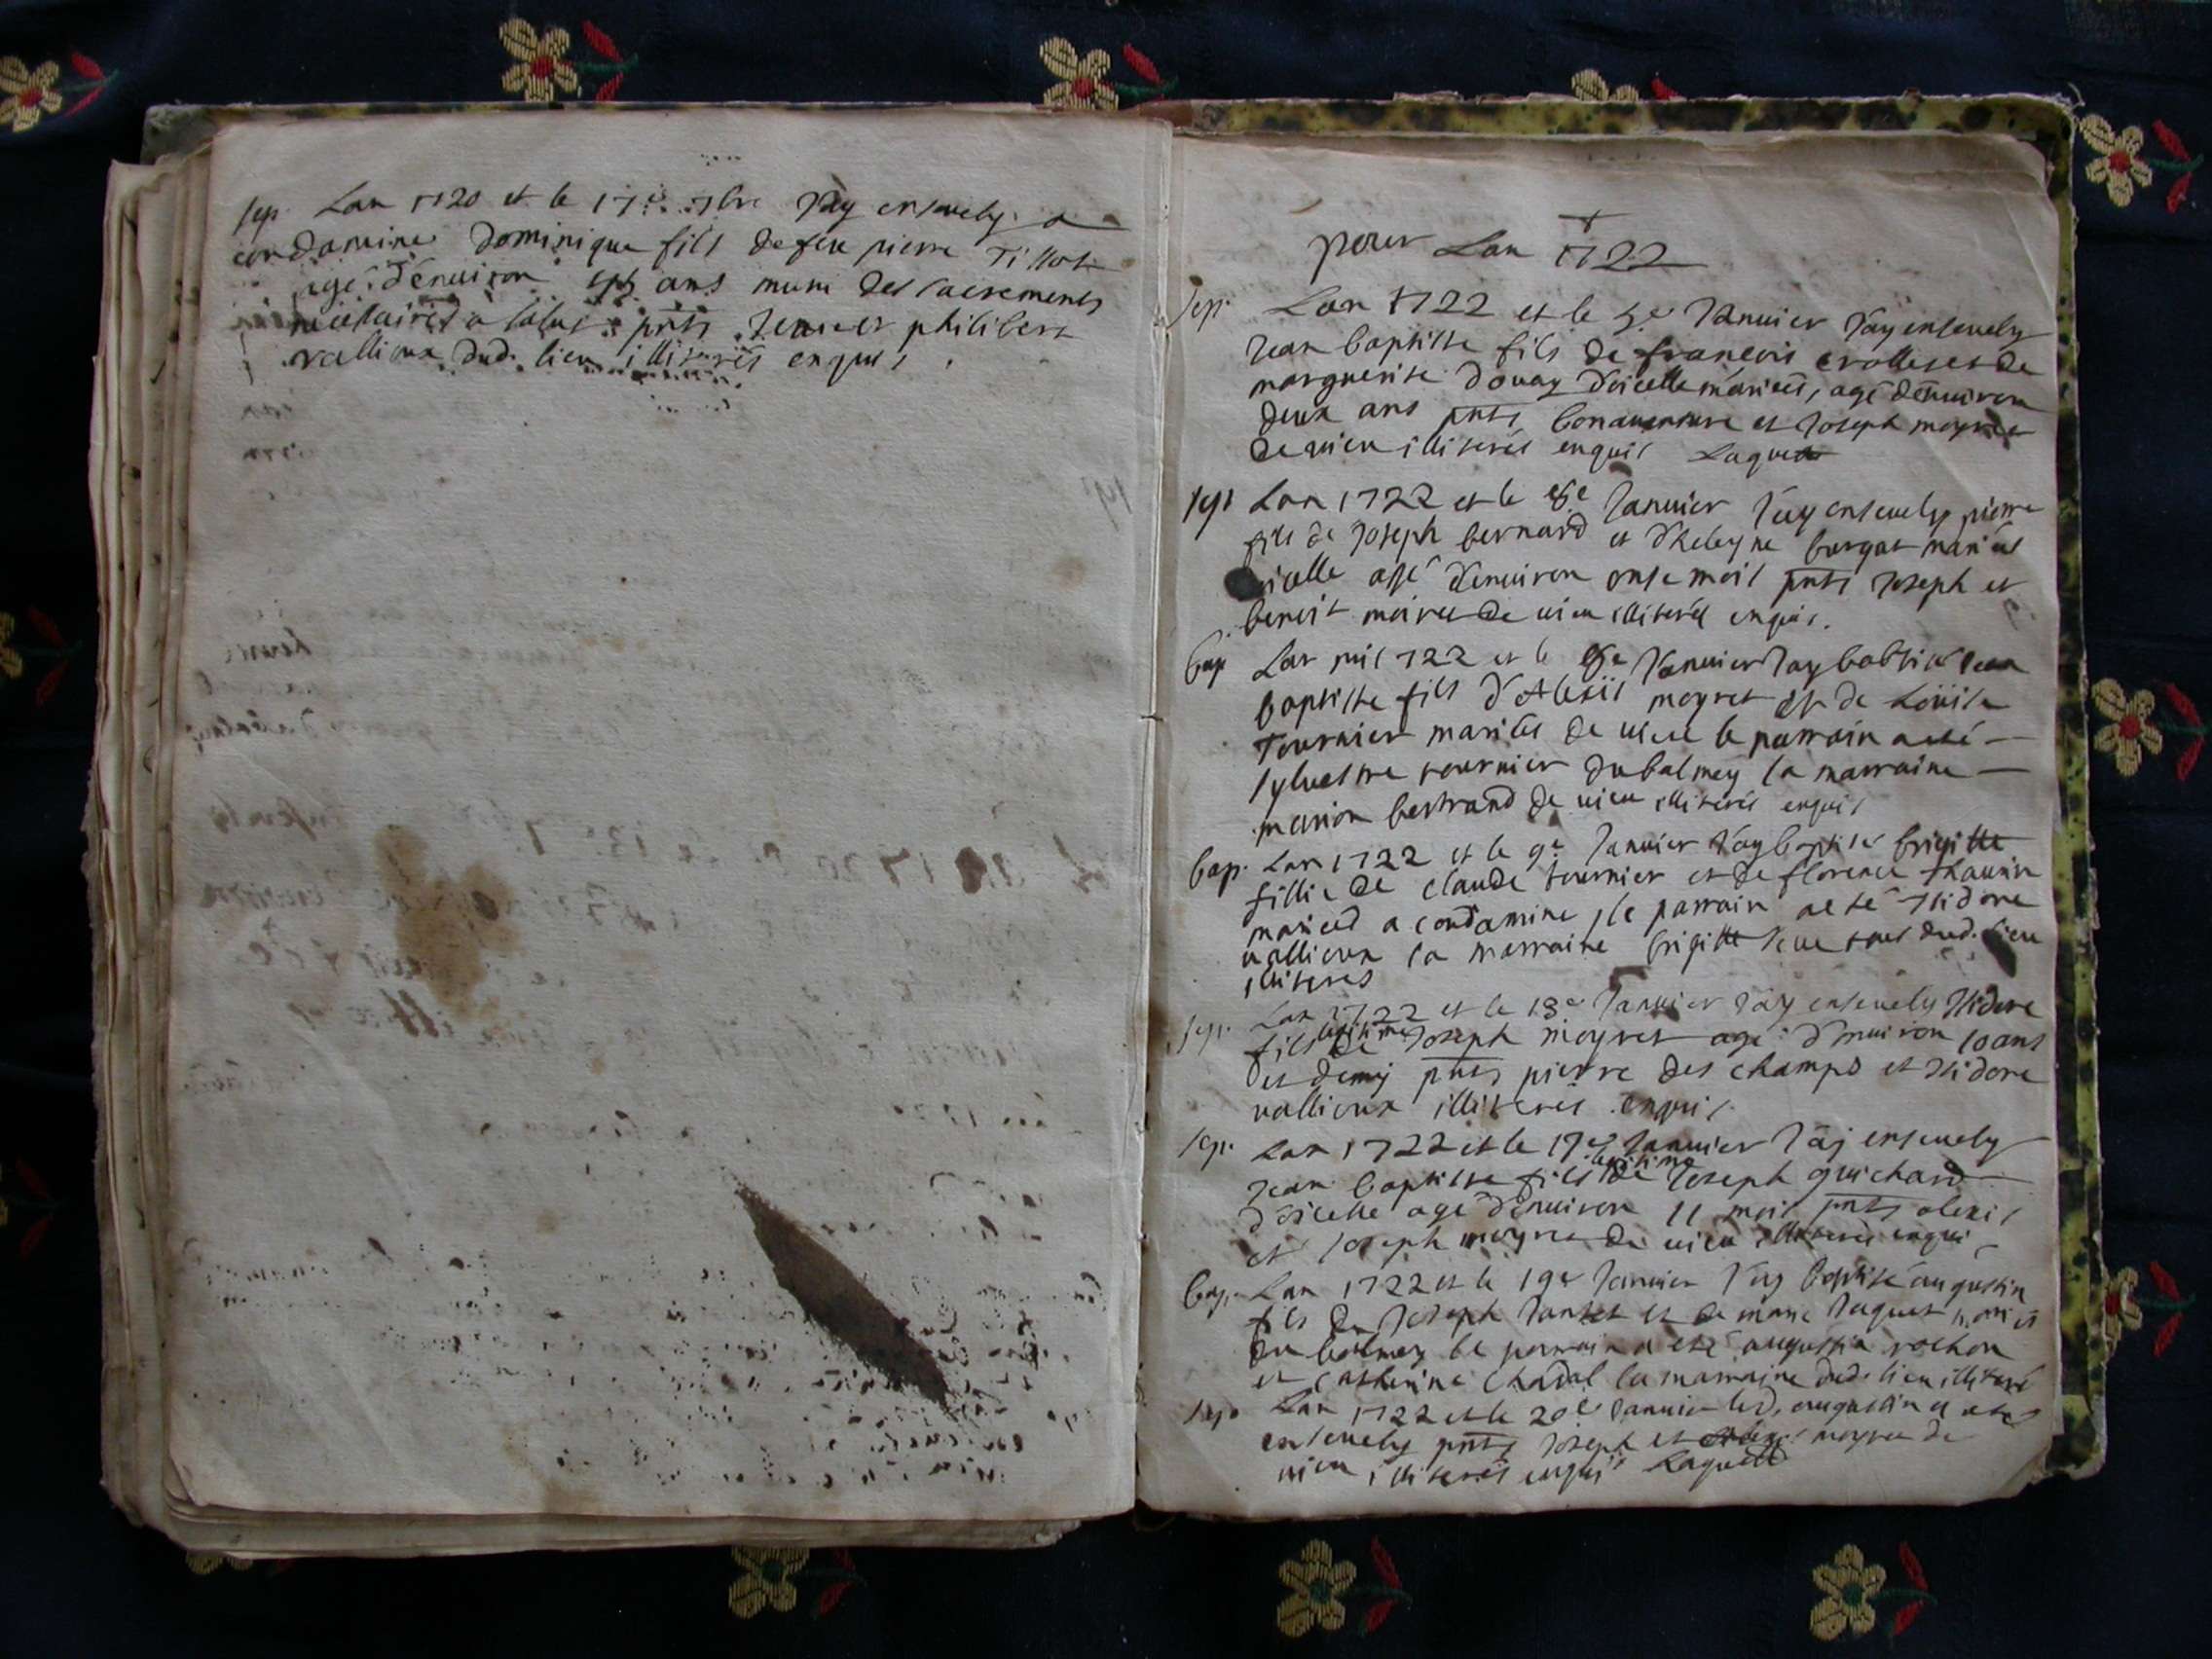 sep. Lan 1720 et le 17e 7bre Jay ensevely a
condamine Dominique fils de feu pierre Tillot
agé d'environ ans muni des sacrements
a salut pnts philibert
vallioux dud. lieu illiterés enquis
pour Lan 1722
sep. Lan 1722 et le 5e Janvier Jay ensevely
Jean baptiste fils de francois crolles et de
marguerite douay d'oicelle mariées, agé d'environ
deux ans pnts bonaventure et Joseph moyret
de vieu illiterés enquis Laguette
sep. Lan 1722 et le 8e Janvier Jay ensevely pierre
fils de Joseph bernard et d'heleyne burgat mariés
oicelle agé d'environ onse mois pnts Joseph et
benoit moiret de vieu illiterés enquis.
bap Lan mil 722 et le 8e Janvier Jay babtisé Jean
baptiste fils d'Alexis moyret et de Loüise
Tournier mariés de vieu le parrain a esté
sylvestre tournier du balmey la marraine
marion bertrand de vieu illiterés enquis
bap. Lan 1722 et le 9e Janvier Jay baptisé brigitte
fillie de claude tournier et de florence thauvin
mariees a condamine, le parrain a esté Isidore
vallioux la marraine brigitte tous dud. lieu
illiteres
sep. Lan 1722 et le 13e Janvier Jay ensevely Isidore
fils legitime de Joseph moyret agé d'environ 10 ans
et demy pnts pierre des champs et Isidore
vallioux illiterés enquis.
sep. Lan 1722 et le 17e Janvier Jaj ensevely
Jean baptiste fils legitime de Joseph guichard
d'oicelle agé d'environ 11 mois pnts alexis
et Joseph moyret de vieu illiterés enquis
bap. Lan 1722 et le 19e Janvier Jay baptisé augustin
fils de Joseph Jantet et de marie Jaquet mariés
du balmey le parrain a esté augustin rochon
et catherine chadal la marraine dud. lieu illiterés
sep. Lan 1722 et le 20e Janvier led. augustin a esté
ensevely pnts Joseph et alexis moyret de
vieu illiterés enquis Laguette